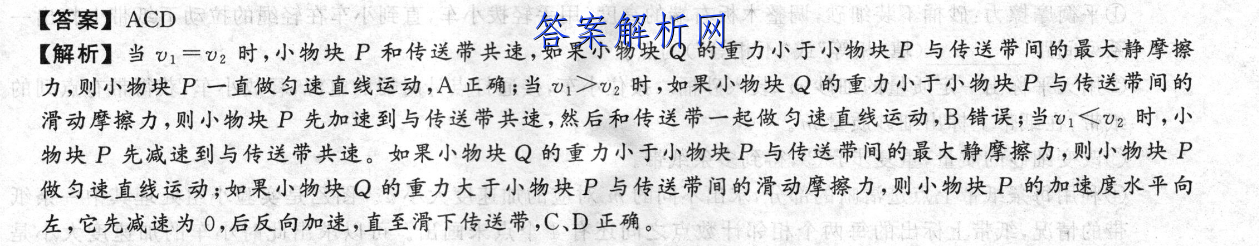 【答案】ACD
答案解析网
【解析】当 v₁=v₂ 时,小物块 P 和传送带共速,如果小物块 Q 的重力小于小物块 P 与传送带间的最大静摩擦
力,则小物块 P 一直做匀速直线运动,A 正确;当 v₁>v₂ 时,如果小物块 Q 的重力小于小物块 P 与传送带间的
滑动摩擦力,则小物块 P 先加速到与传送带共速,然后和传送带一起做匀速直线运动,B 错误;当 v₁<v₂ 时,小
物块 P 先减速到与传送带共速。如果小物块 Q 的重力小于小物块 P 与传送带间的最大静摩擦力,则小物块 P
做匀速直线运动;如果小物块 Q 的重力大于小物块 P 与传送带间的滑动摩擦力,则小物块 P 的加速度水平向
左,它先减速为 0,后反向加速,直至滑下传送带,C、D 正确。